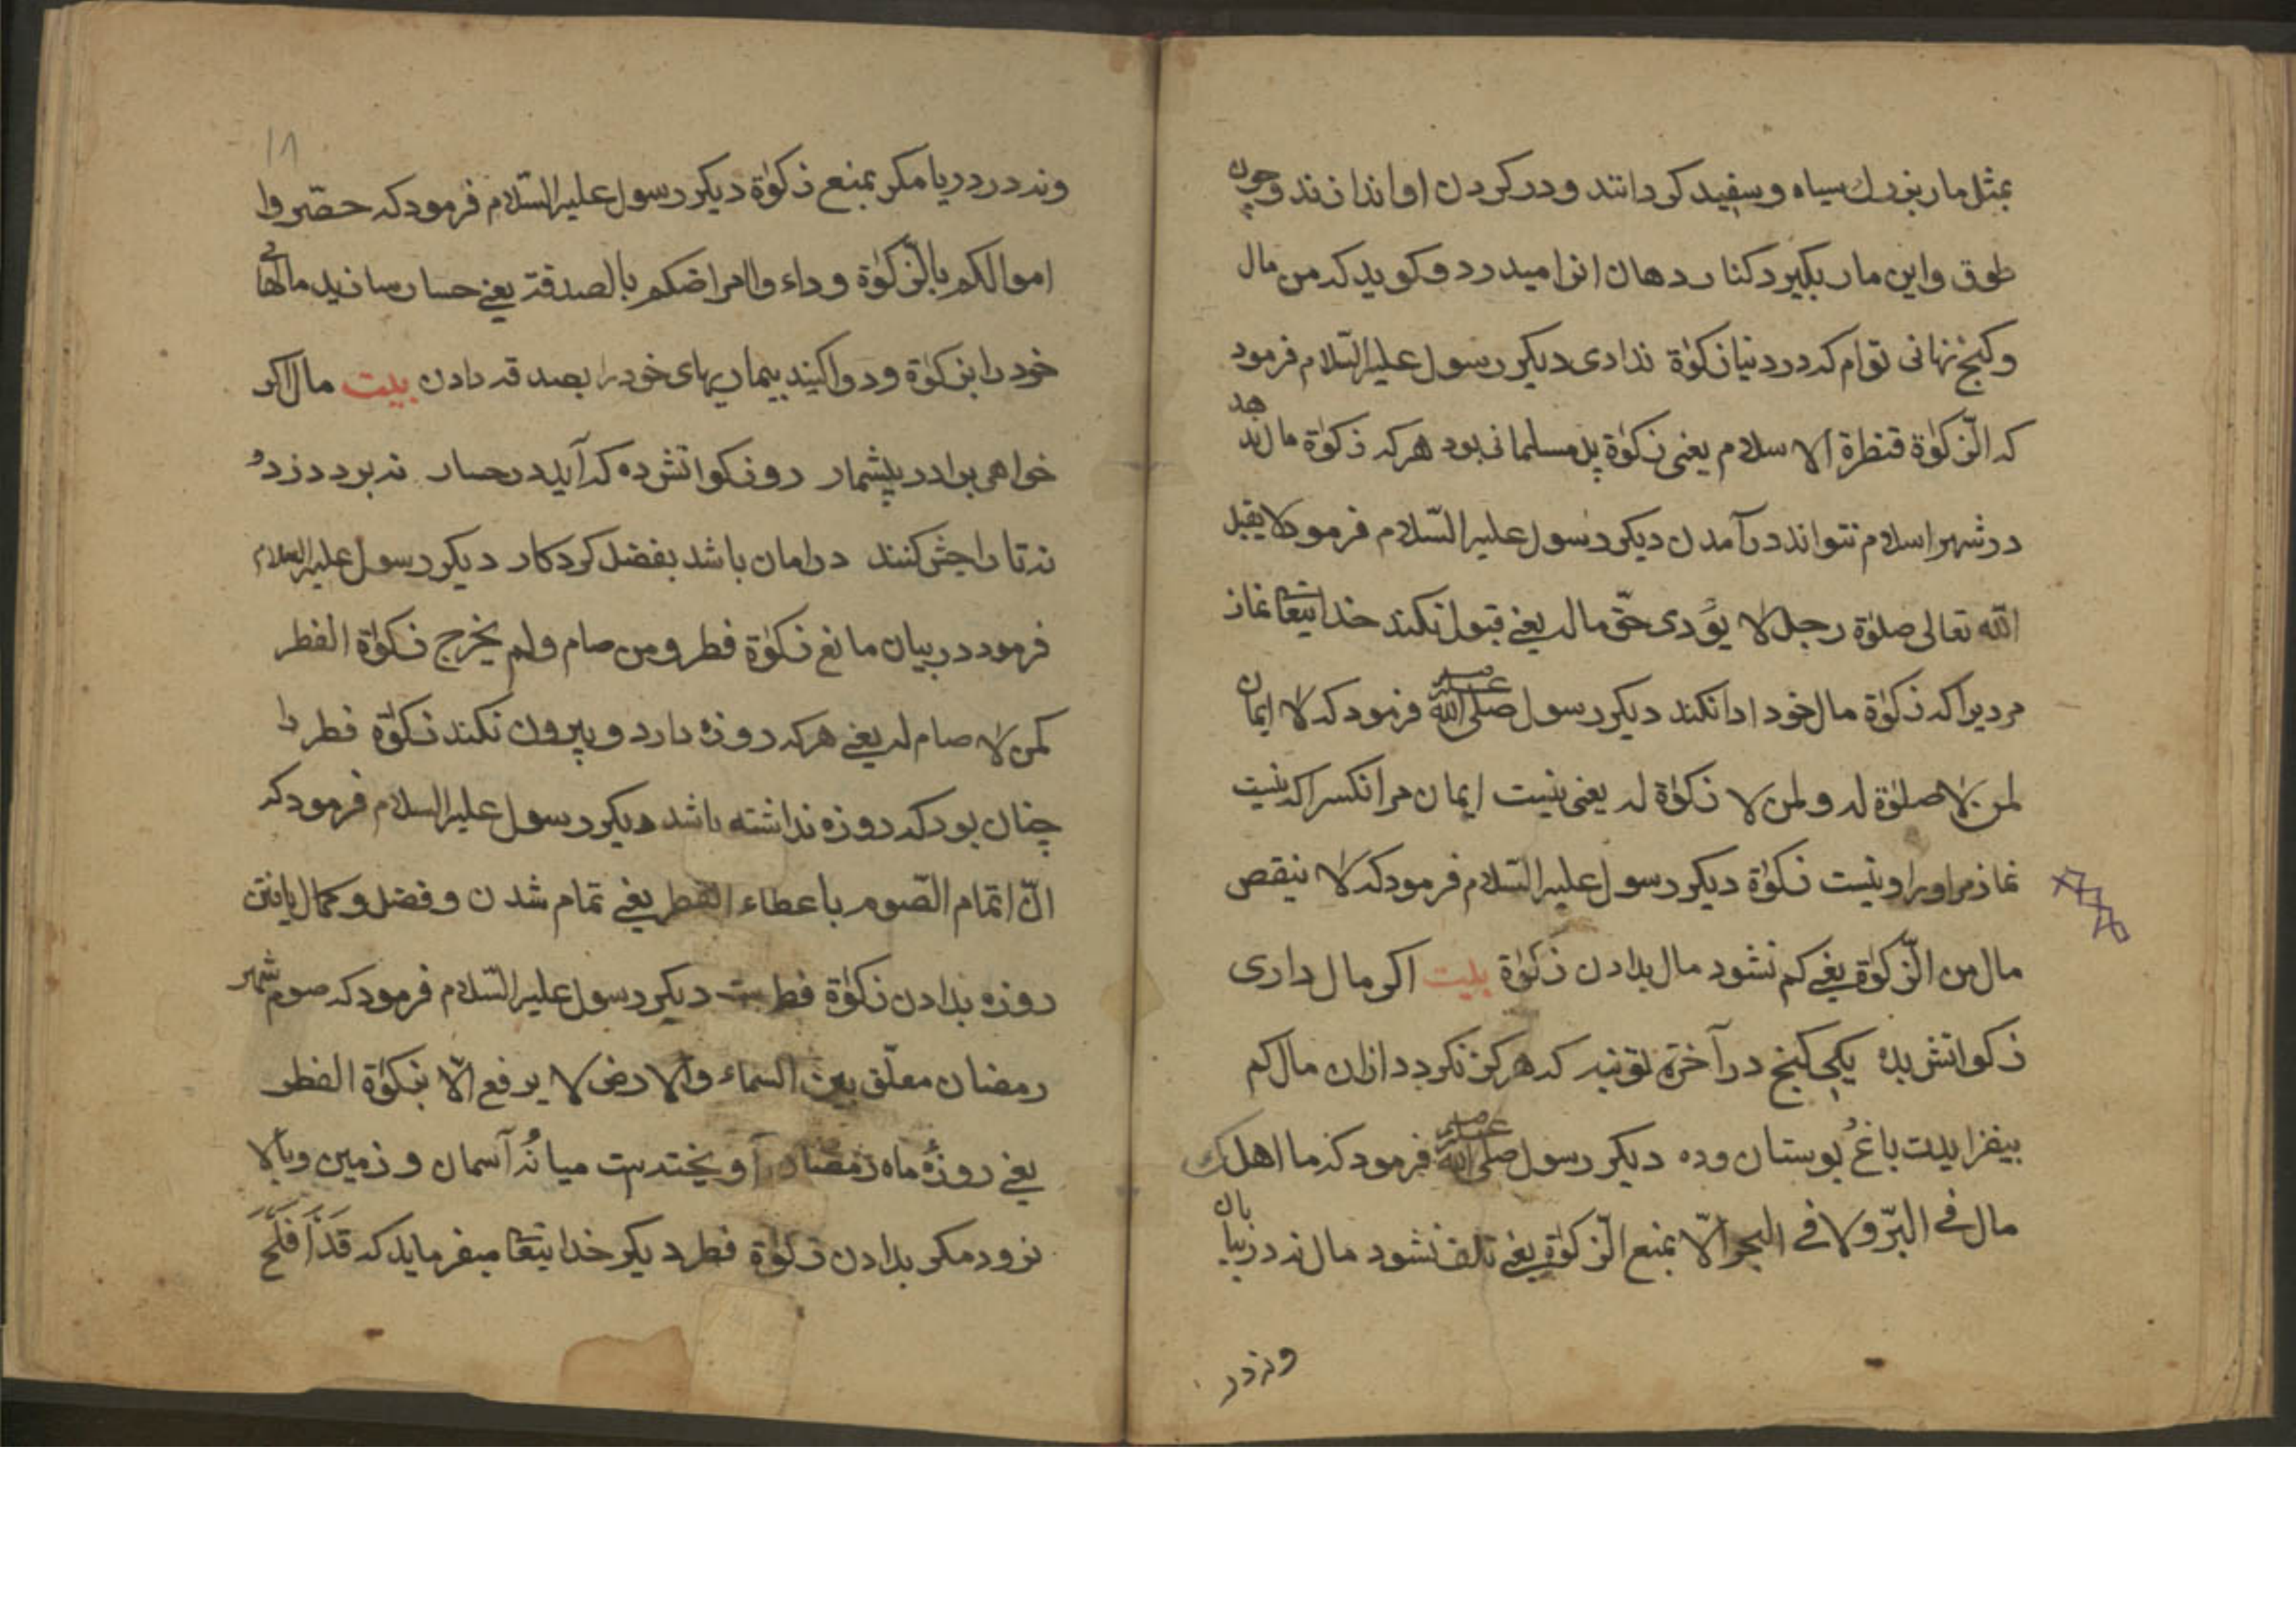 بمثل مار بزرك سياه و سفيد كردانند و در كردن او اندازند و چون
طوق و اين مار بكيرد كنار دهان انرا ميدرد و كويد كه من مال
و كنج نهانى توام كه در دنيا زكوٰة ندادى ديكر رسول عليه السّلام فرمود
كه الزّكوٰة قنطرة الاسلام يعنى زكوٰة پل مسلمانى بود هركه زكوٰة مال ندهد
در شهر اسلام نتواند در آمدن ديكر رسول عليه السّلام فرمود لا يقبل
اللّه تعالى صلوٰة رجل لا يؤدى حقّ ماله يعنے قبول نكند خدايتعا نماز
مرديرا كه زكوٰة مال خود ادا نكند ديكر رسول صلى اللّه عليه فرمود كه لا ايمان
لمن لا صلوٰة له و لمن لا زكوٰة له يعنى نيست ايمان مر انكسرا كه نيست
نماز مر اورا و نيست زكوٰة ديكر رسول عليه السّلام فرمود كه لا ينقص
مال من الزّكوٰة يعنے كم نشود مال بدادن زكوٰة بيت اكر مال دارى
زكواتش بده يكى كنج در آخرة تو نيه كه هركز نكردد ازان مال كم
بيفزايدت باغ بوستان وده ديكر رسول صلى اللّه عليه فرمود كه ما اهلك
مال فے البرّ ولا فے البحر الّا بمنع الزّكوٰة يعنے تلف نشود مال نه در بيابان
ونه در
١٨
ونه در دريا مكر بمنع زكوٰة ديكر رسول عليه السّلام فرمود كه حصّروا
اموالكم بالزّكوٰة و داءوا امراضكم بالصدقة يعنے حصار سازيد مالهائے
خود را بزكوٰة و دوا كنيد بيماريهاى خود را بصدقه دادن بيت مال اكر
خواهى برادر بيشمار رو زكواتش ده كه آيد در حصار نه برد دزدو
نه تاراجش كنند در امان باشد بفضل كردكار ديكر رسول عليه السلام
فرمود در بيان مانع زكوٰة فطر ومن صام ولم يخرج زكوٰة الفطر
كمن لا صام له يعنے هركه روزه دارد و بيرون نكند زكوٰة فطر را
چنان بود كه روزه نداشته باشد ديكر رسول عليه السلام فرمود كه
انّ اتمام الصّوم باعطاء الفطر يعنے تمام شدن و فضل و كمال يافتن
روزه بدادن زكوٰة فطرست ديكر رسول عليه السّلام فرمود كه صوم شهر
رمضان معلّق بين السماء والارض لا يرفع الّا بزكوٰة الفطر
يعنے روزهٔ ماه رمضان آويخته ست ميانهٔ آسمان و زمين و بالا
نرود مكر بدادن زكوٰة فطر ديكر خدايتعا ميفرمايد كه قَدْ اَفْلَحَ